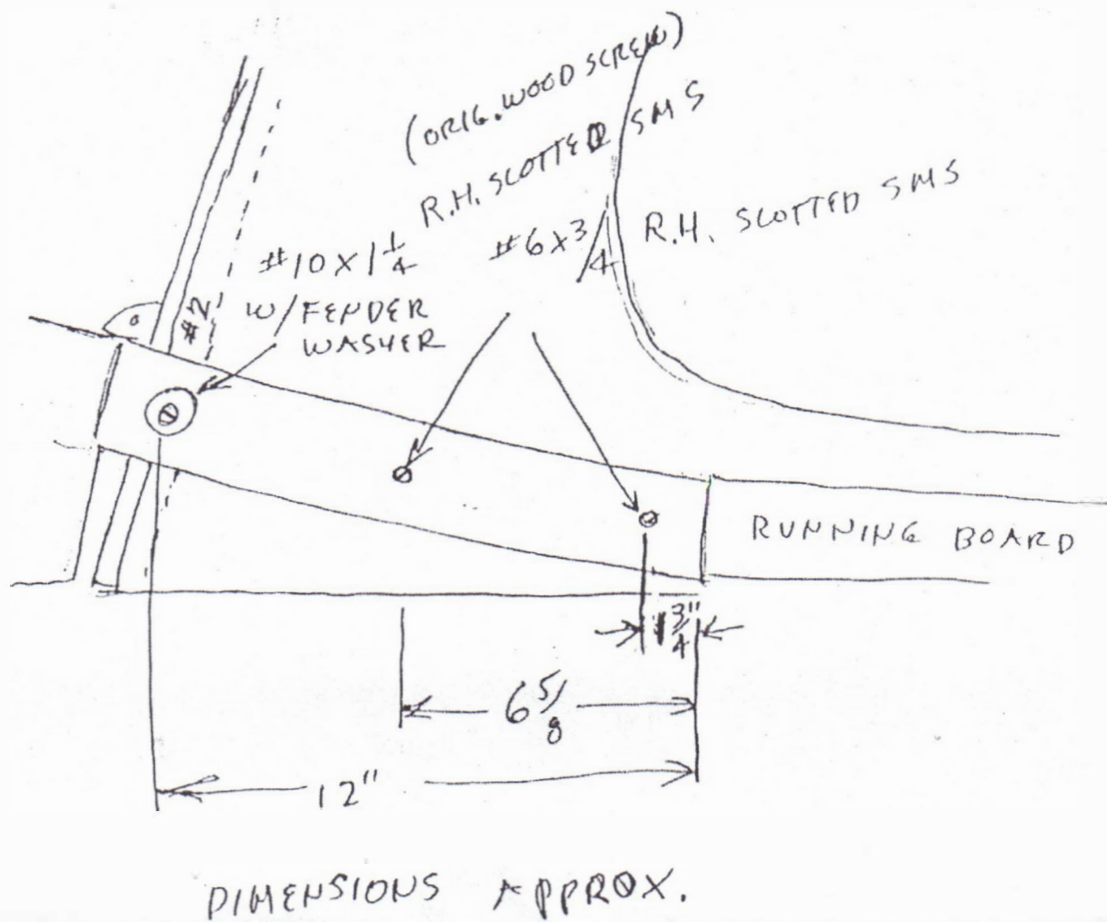 (ORIG. WOOD SCREW)
R.H. SCOTTED SMS
#10 X 1 1/4
W/FENDER
WASHER
#6 X 3/4
R.H. SCOTTED SMS
#2
RUNNING BOARD
3/4"
6 5/8
12"
DIMENSIONS APPROX.